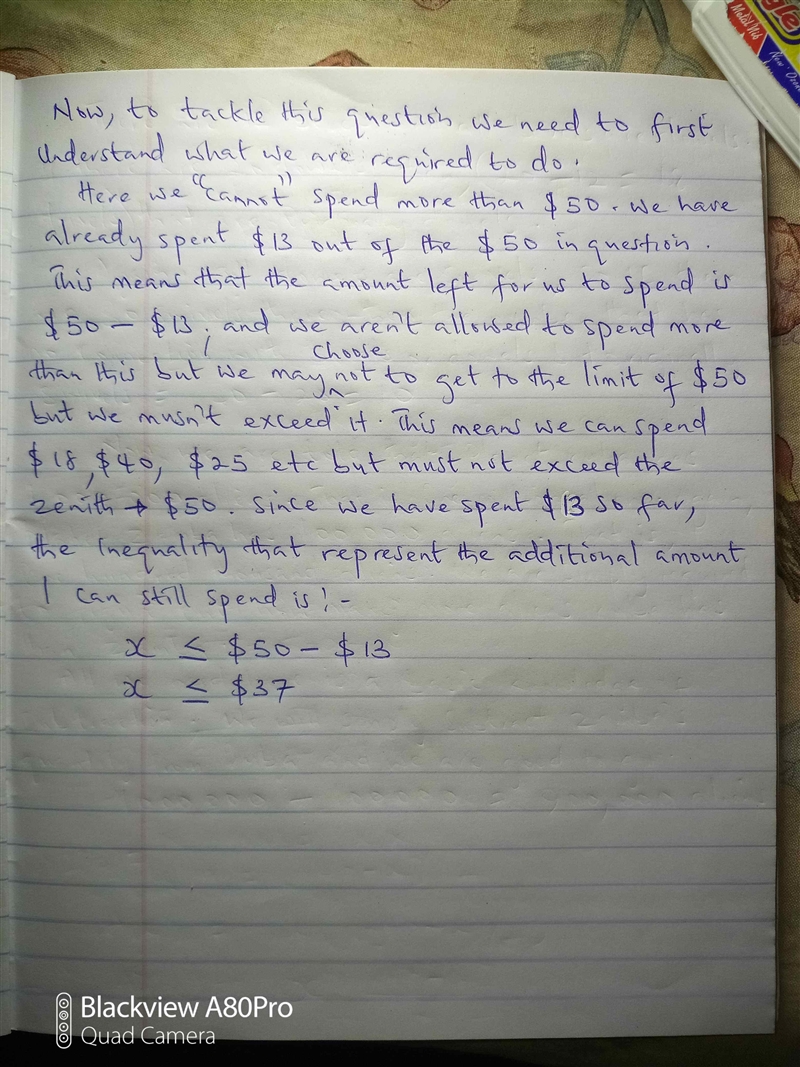 gle
Metal Nib
New
Now, to tackle this question we need to first
understand what we are required to do.
Here we "cannot" spend more than $50. We have
already spent $13 out of the $50 in question.
This means that the amount left for us to spend is
$50 - $13; and we aren't allowed to spend more
choose
than this but we may not to get to the limit of $50
but we musn't exceed it. This means we can spend
$18, $40, $25 etc but must not exceed the
zenith → $50. Since we have spent $13 so far,
the inequality that represent the additional amount
I can still spend is:-
x ≤ $50 - $13
x ≤ $37
Blackview A80Pro
Quad Camera